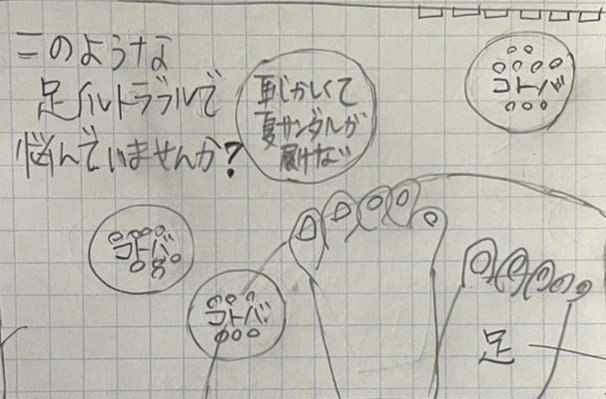 このような
足爪トラブルで
悩んでいませんか?
恥じかしくて
夏サンダルが
履けない
○○
○○○○
コトバ
○○○
○○○○
コトバ
○○○
○○○
コトバ
○○○
足